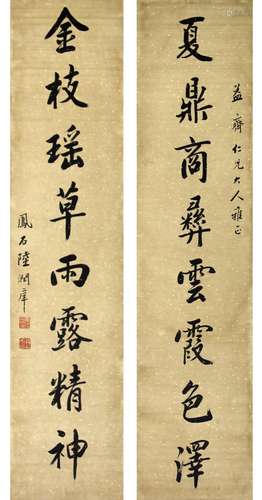 益齋仁兄大人雅正
夏鼎商彝雲霞色澤
金枝瑤草雨露精神
鳳石陸潤庠